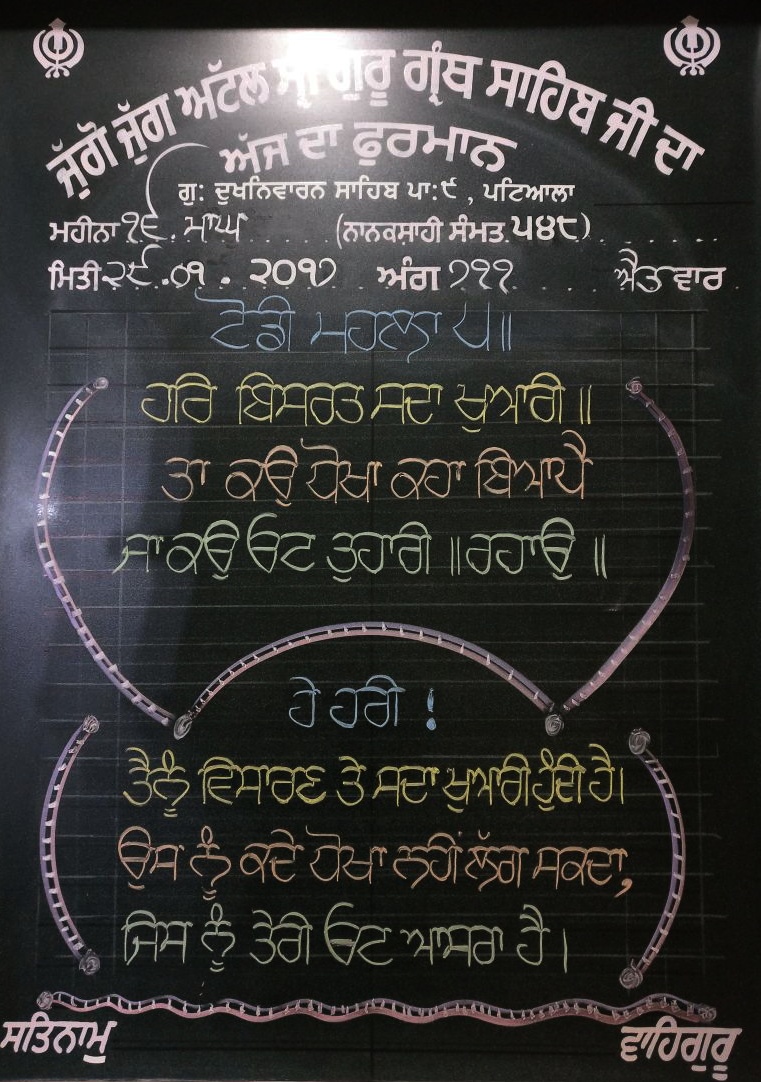 ਜੁੱਗੋ ਜੁੱਗ ਅਟੱਲ ਸ੍ਰੀ ਗੁਰੂ ਗ੍ਰੰਥ ਸਾਹਿਬ ਜੀ ਦਾ
ਅੱਜ ਦਾ ਫੁਰਮਾਨ
ਗੁ: ਦੁਖਨਿਵਾਰਨ ਸਾਹਿਬ ਪਾ:੯ , ਪਟਿਆਲਾ
ਮਹੀਨਾ ੧੬. ਮਾਘ (ਨਾਨਕਸ਼ਾਹੀ ਸੰਮਤ ੫੪੮)
ਮਿਤੀ ੨੯.੦੧.੨੦੧੭ ਅੰਗ ੭੧੧ ਐਤਵਾਰ
ਟੋਡੀ ਮਹਲਾ ੫॥
ਹਰਿ ਬਿਸਰਤ ਸਦਾ ਖੁਆਰੀ ॥
ਤਾ ਕਉ ਧੋਖਾ ਕਹਾ ਬਿਆਪੈ
ਜਾ ਕਉ ਓਟ ਤੁਹਾਰੀ ॥ਰਹਾਉ ॥
ਹੇ ਹਰੀ !
ਤੈਨੂੰ ਵਿਸਾਰਣ ਤੇ ਸਦਾ ਖੁਆਰੀ ਹੁੰਦੀ ਹੈ।
ਉਸ ਨੂੰ ਕਦੇ ਧੋਖਾ ਨਹੀਂ ਲੱਗ ਸਕਦਾ,
ਜਿਸ ਨੂੰ ਤੇਰੀ ਓਟ ਆਸਰਾ ਹੈ।
ਸਤਿਨਾਮੁ ਵਾਹਿਗੁਰੂ